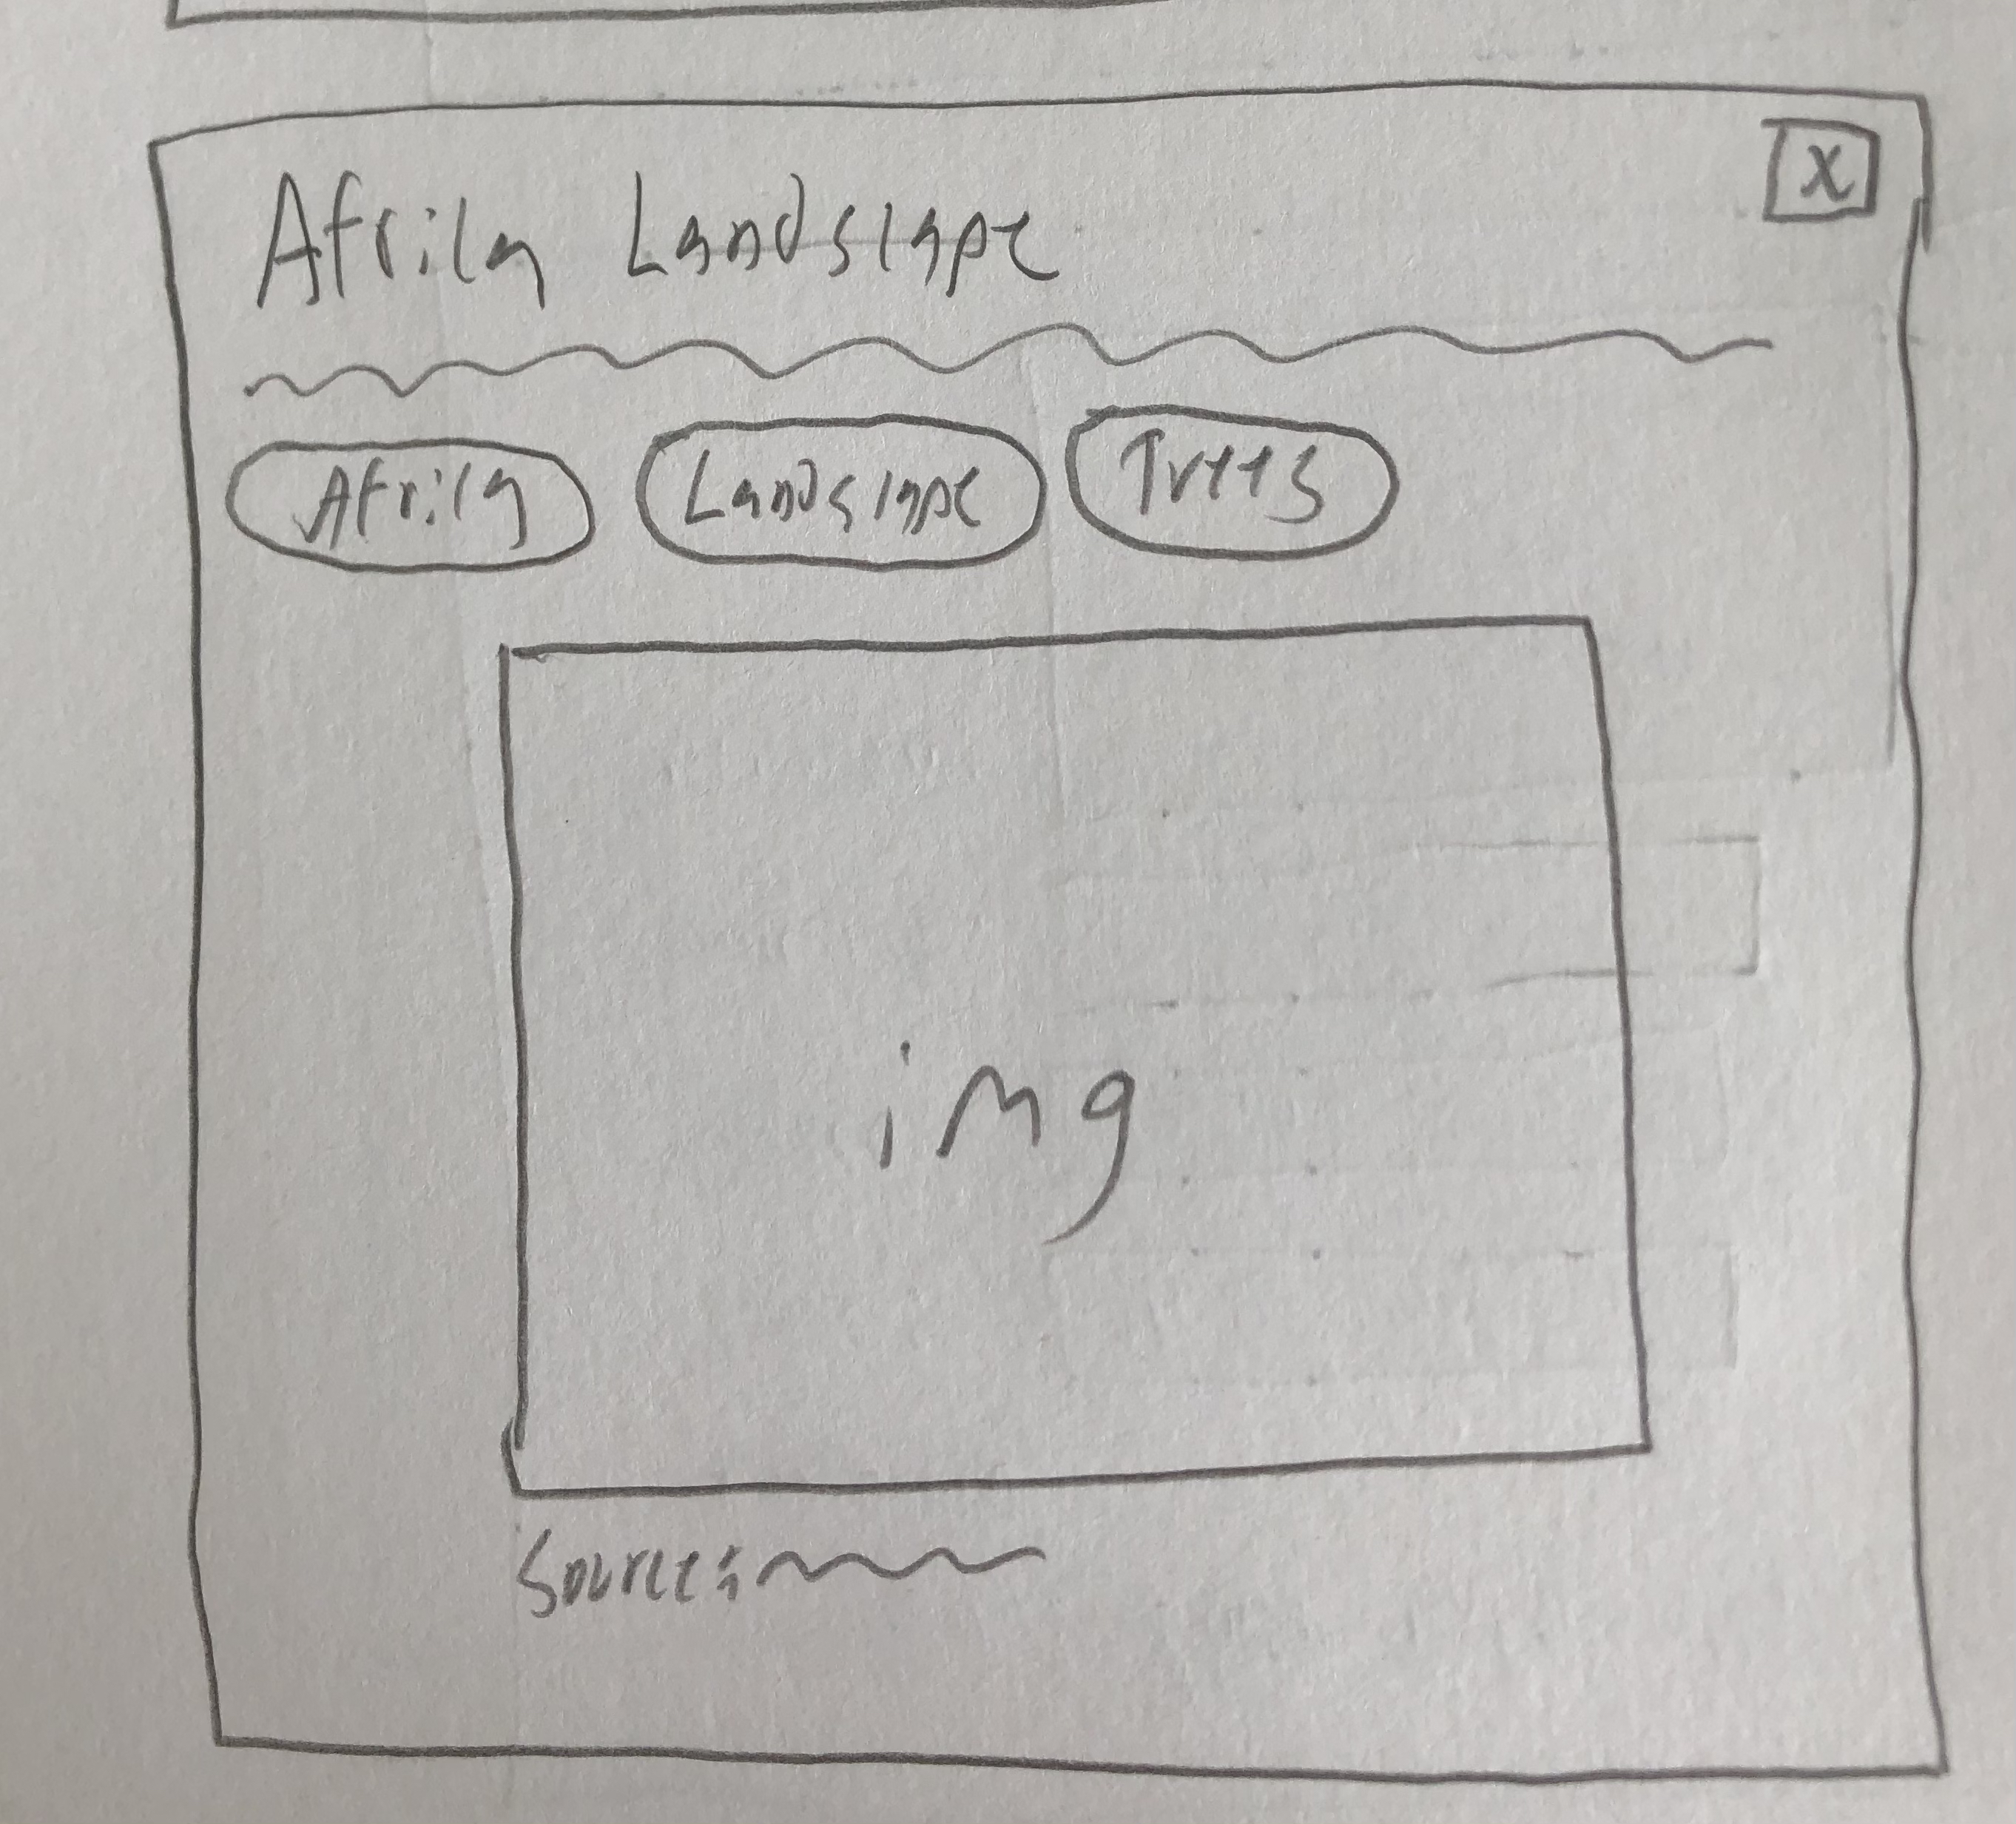 X
Africa Landscape
Africa Landscape Trees
img
Source: